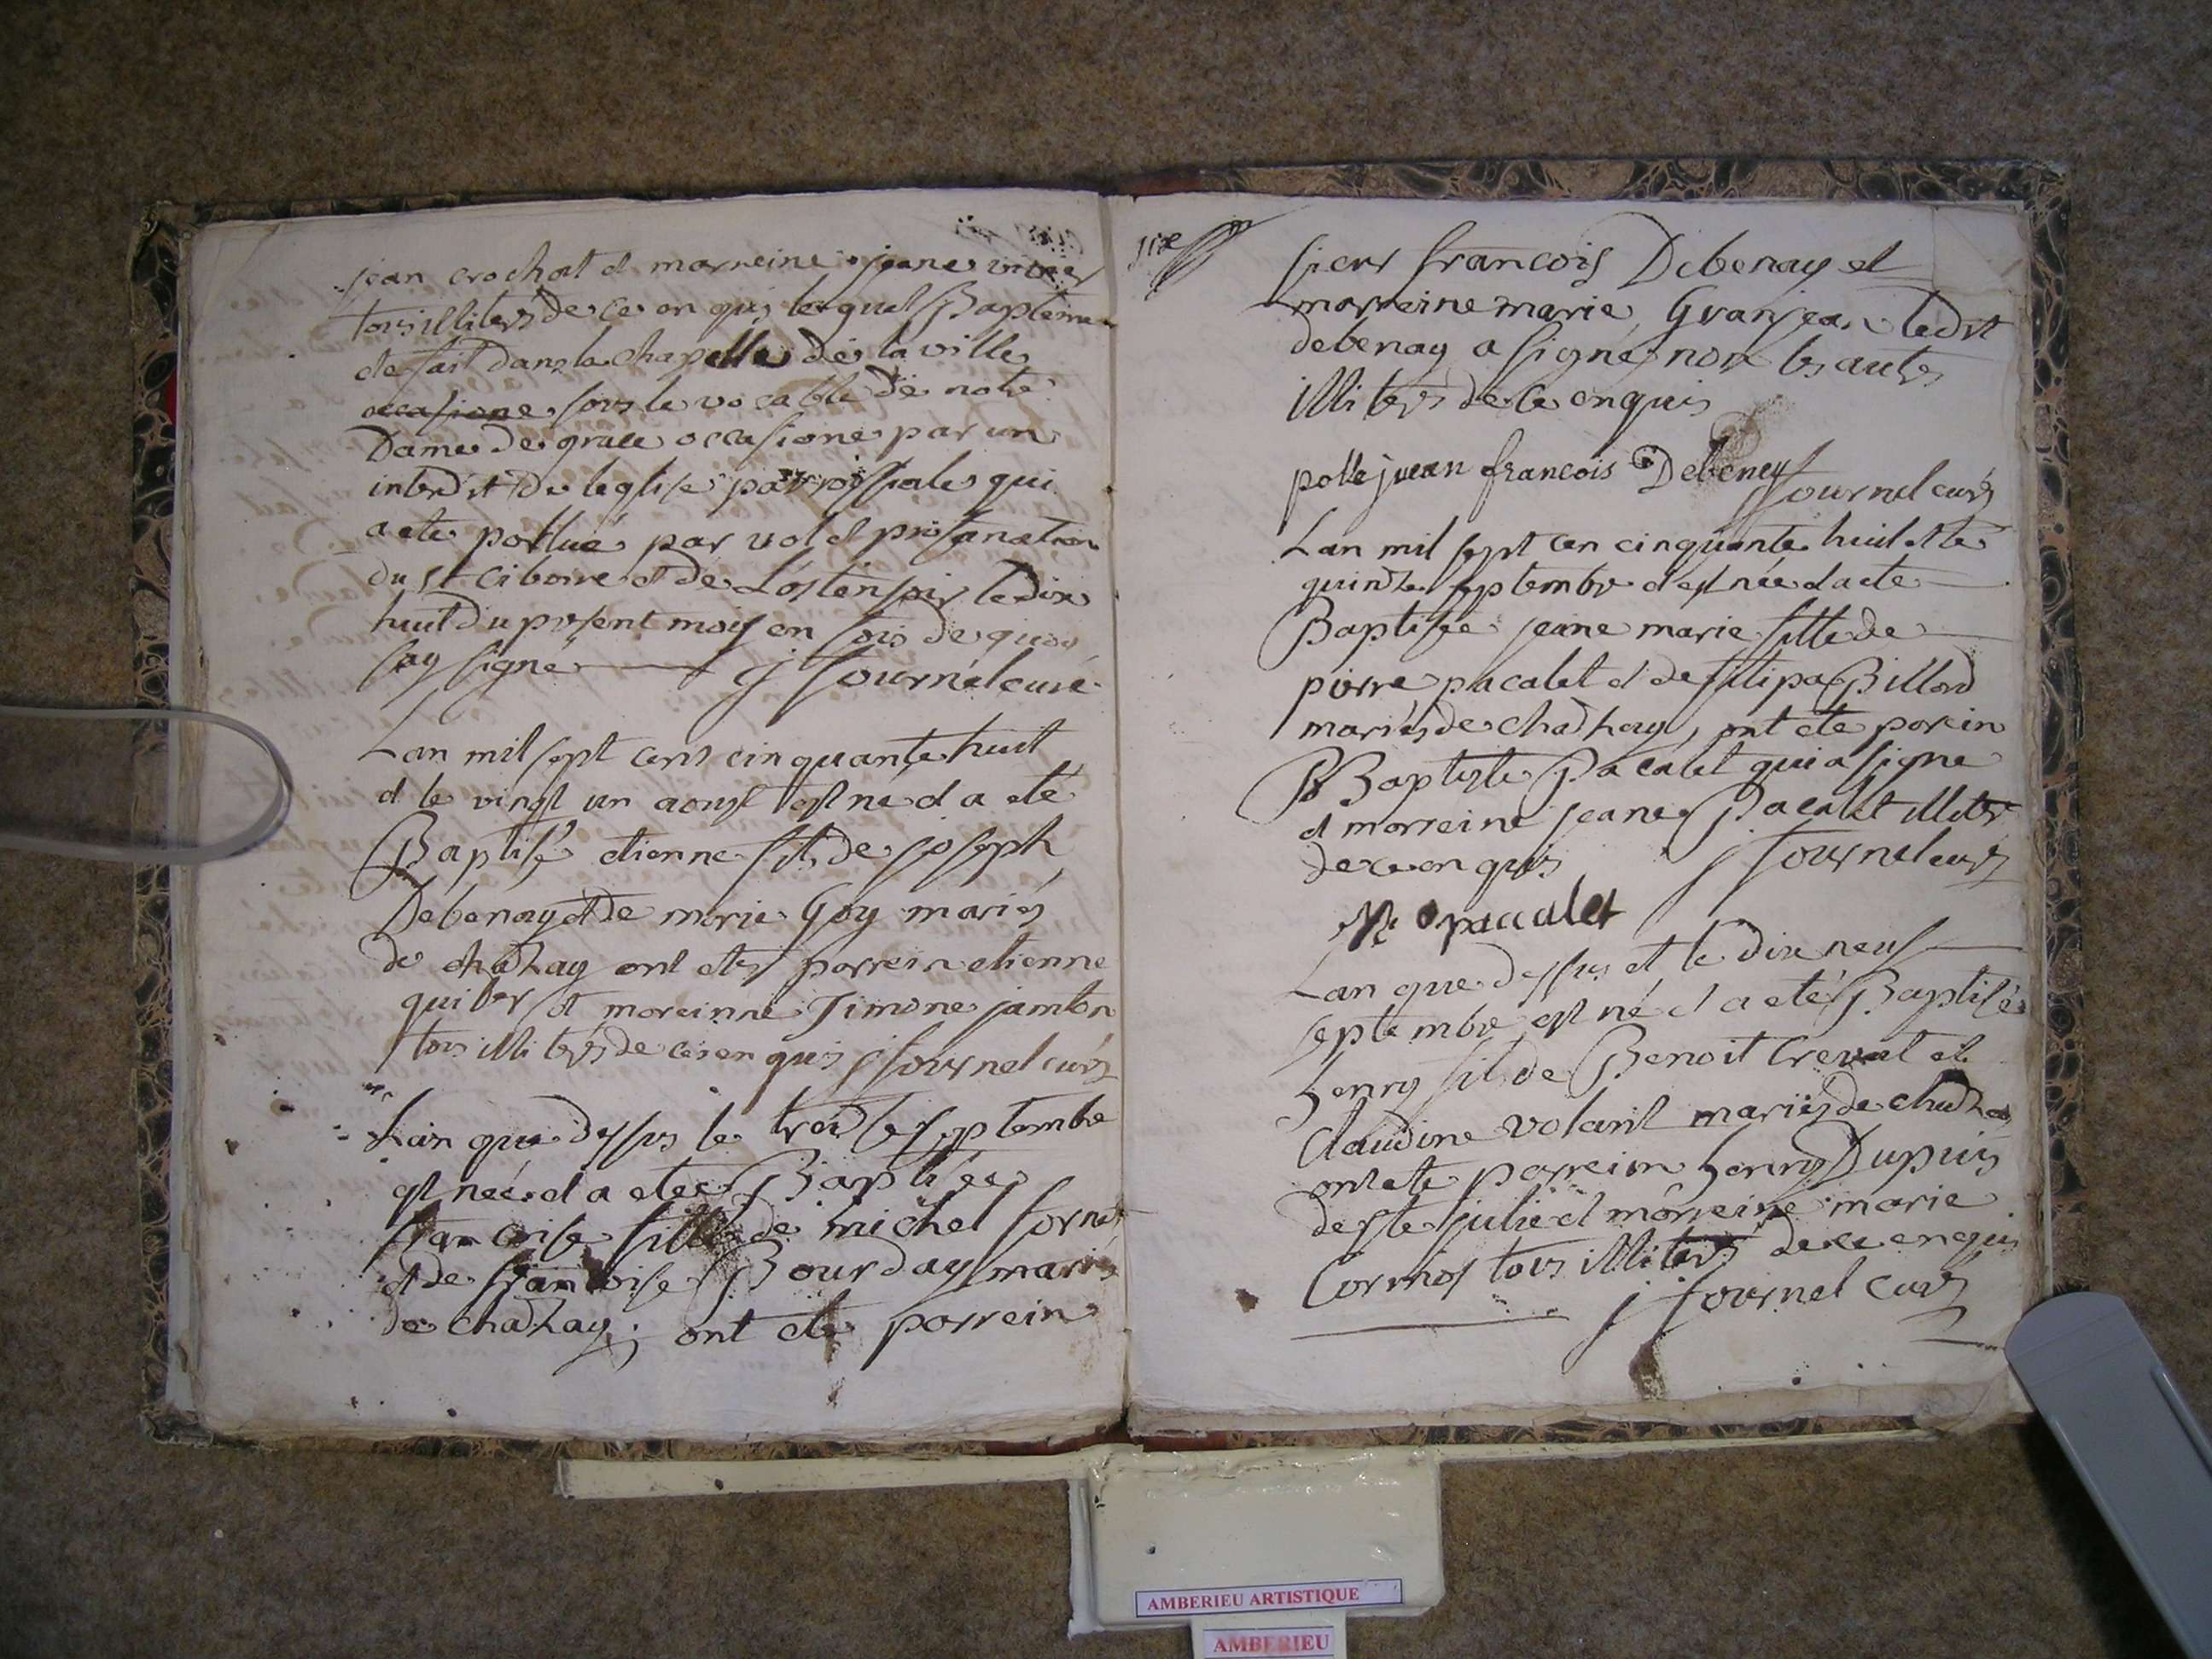 jean crochat et marreine jeane
tous illiterés de ce enquis lequel Bapteme
ete fait dans la chapelle de la ville
occasione sous le vocable de notre
Dame de grace occasioné par un
interdit de leglise parroissiale qui
a ete polluée par vol et profanation
du st ciboire et de Lostensoir le dix
huit du present mois en fois de quoi
jay signé j fournel curé
Lan mil sept cent cinquante huit
et le vingt un aoust est né et a eté
Baptisé etienne fils de joseph
Debenay et de marie Goy mariés
de chazay ont etes porrein etienne
et moreinne Simone jambon
tous illiterés de ce enquis j fournel curé
Lan que dessus le treize septembre
est née et a etee Baptisee
francoise fille de michel fornet
et de francoise Bourday mariés
de chazay, ont eté porrein
sieur francois Debenay et
morreine marie Granjean ledit
debenay a signé non les autres
illiterés de ce enquis
juan francois Debeney
fournel curé
Lan mil sept cen cinquante huil et le
quinze septembre est née et a ete
Baptisée jeane marie fille de
pierre pacalet et de filipa Billard
mariés de chazay, ont ete porein
Baptiste Pacalet qui a signe
et morreine jeane Pacalet illitere
de ce enquis j fournel curé
paccalet
Lan que dessus et le dix neuf
septembre est né et a eté Baptisé
henry fil de Benoit Crevat et
Claudine volant mariés de chaza
ont ete porrein henry Dupuis
de ste julie et morreine marie
Cormos tous illiterés de ce enquis
j fournel curé
AMBERIEU ARTISTIQUE
AMBERIEU